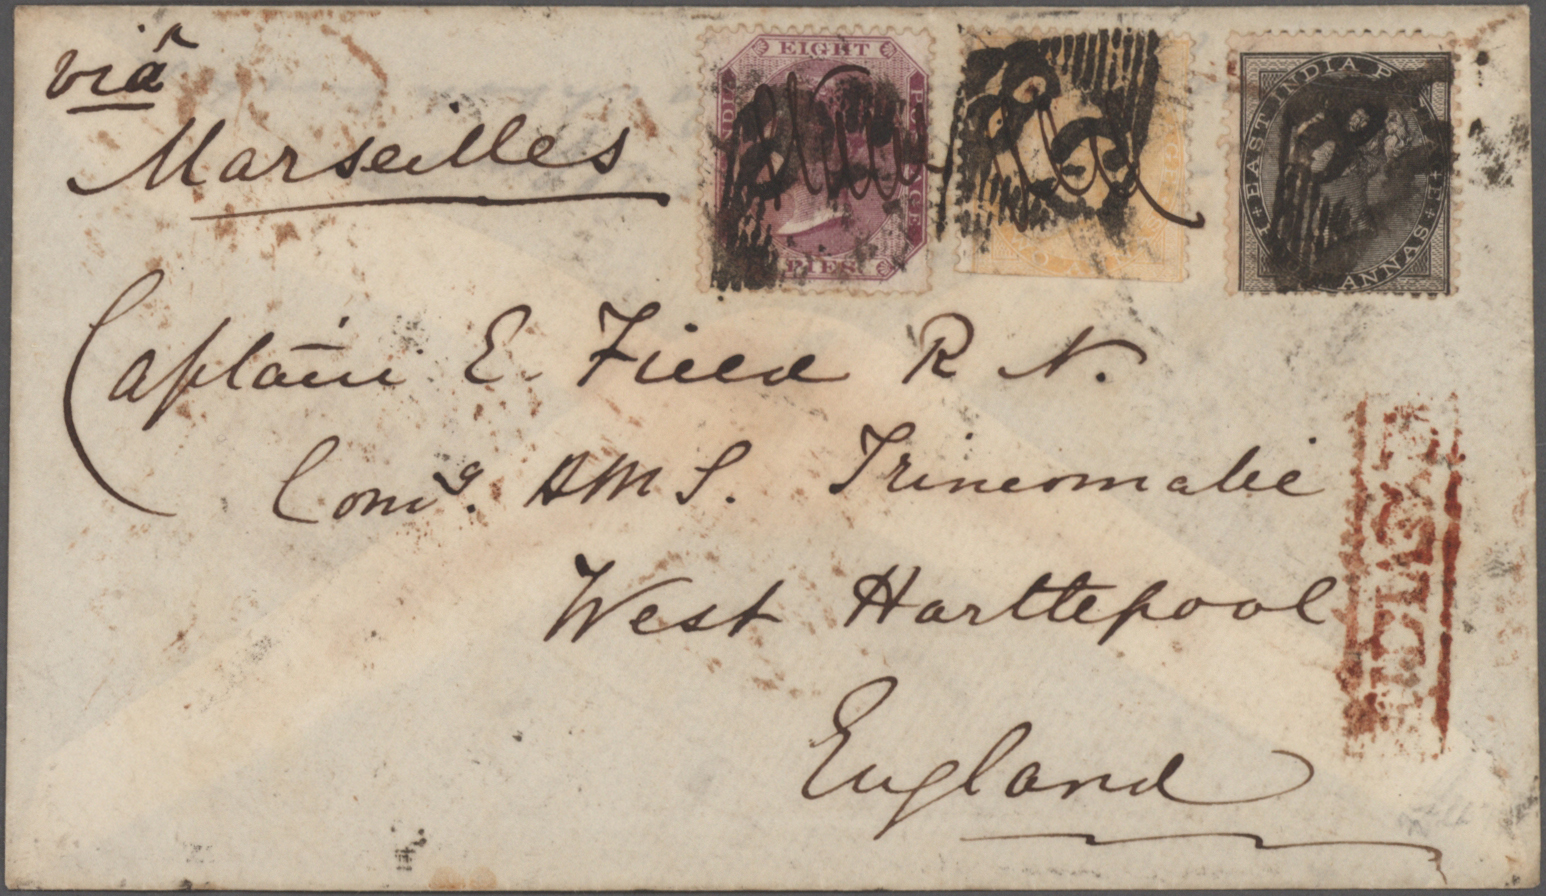 viâ
Marseilles
EIGHT
INDIA POSTAGE
PIES
EAST INDIA
ANNAS
Captain E. Field R N.
Comg. HMS. Trincomalie
West Harttepool
England